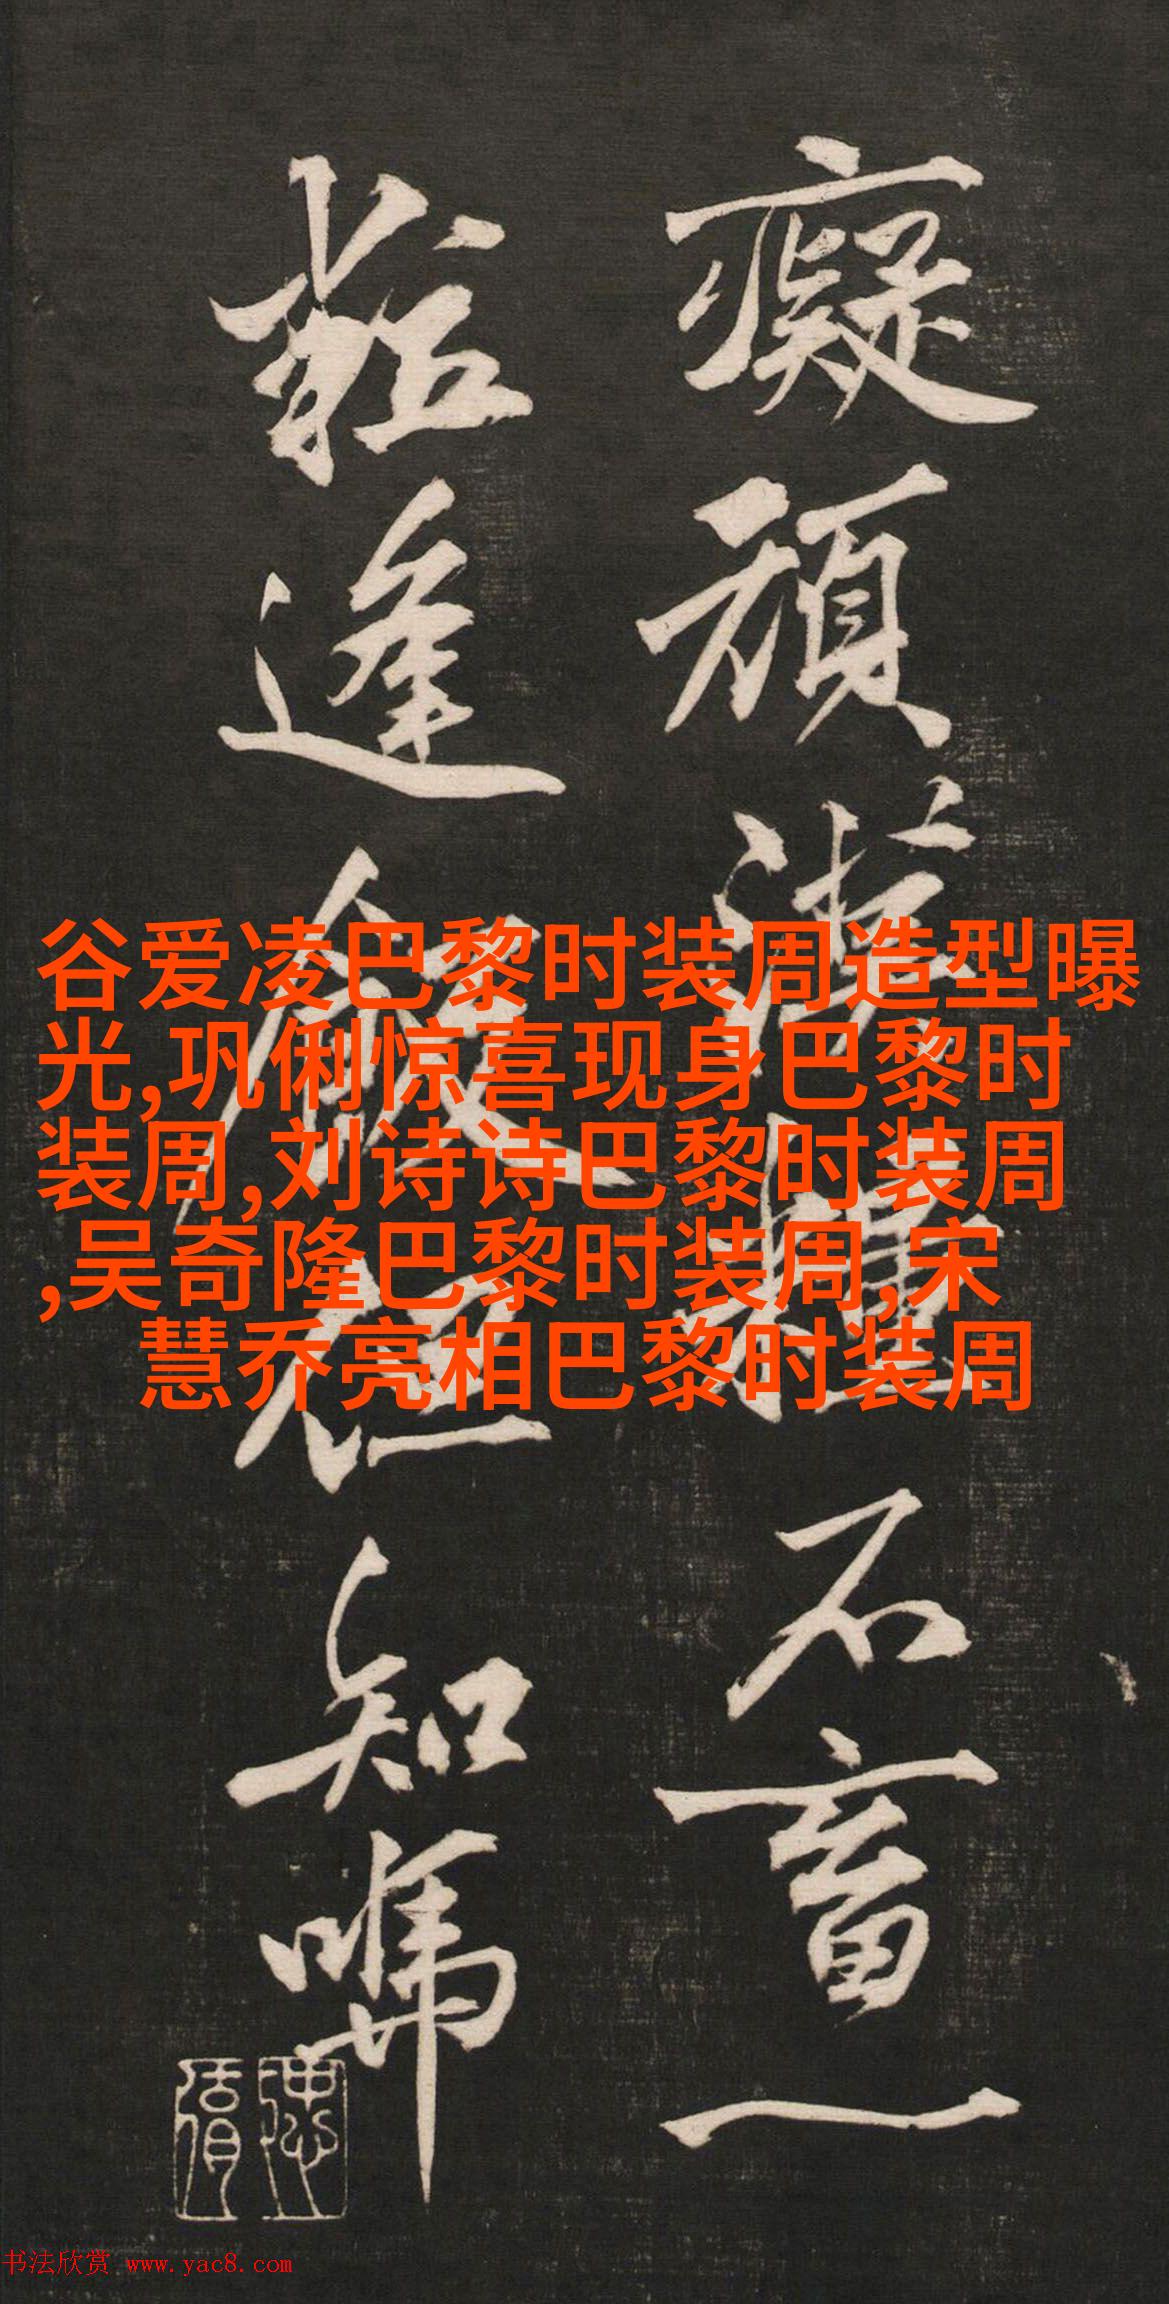 癡頑
畜一
逢飯但知
谷爱凌巴黎时装周造型曝
光,巩俐惊喜现身巴黎时
装周,刘诗诗巴黎时装周
,吴奇隆巴黎时装周,宋
慧乔亮相巴黎时装周
书法欣赏 www.yac8.com